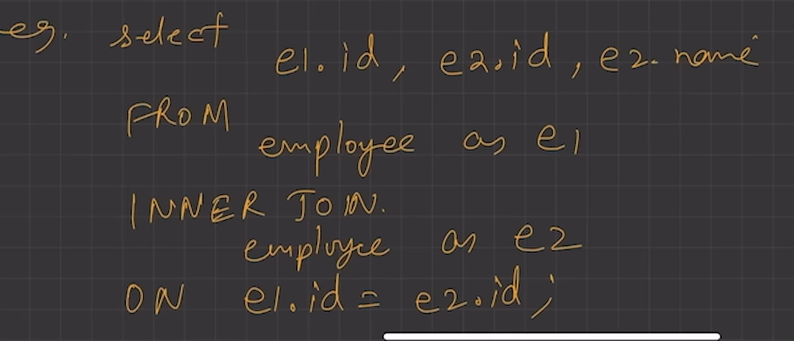 eg. select
e1.id, e2.id, e2.name
FROM
employee as e1
INNER JOIN.
employee as e2
ON e1.id = e2.id;